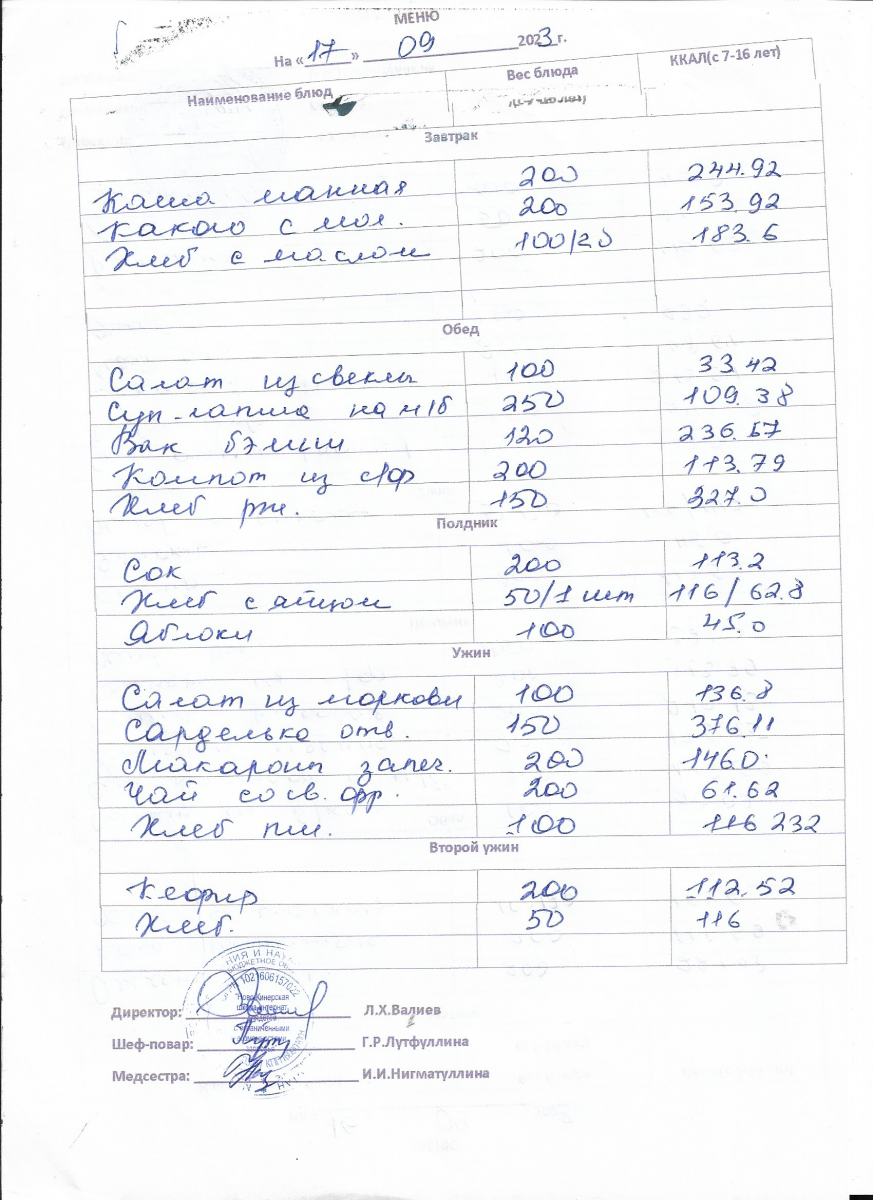 МЕНЮ
На «17» 09 2023 г.
Наименование блюд Вес блюда ККАЛ(с 7-16 лет)
Завтрак
Каша манная 200 244.92
Какао с мол. 200 153.92
Хлеб с маслом 100/20 183.6
Обед
Салат из свеклы 100 33.42
Суп-лапша на м/б 250 109.38
Вак бэлиш 120 236.57
Компот из с/ф 200 113.79
Хлеб рж. 150 327.0
Полдник
Сок 200 113.2
Хлеб с яйцом 50/1 шт 116/62.8
Яблоки 100 45.0
Ужин
Салат из моркови 100 136.8
Сарделька отв. 150 376.11
Макароны запеч. 200 146.0
Чай со св. фр. 200 61.62
Хлеб пш. 100 116 232
Второй ужин
Кефир 200 112.52
Хлеб. 50 116
Директор: Л.Х.Валиев
Шеф-повар: Г.Р.Лутфуллина
Медсестра: И.И.Нигматуллина
1021606157022